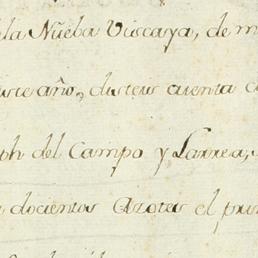 la Nueba Viscaya, de m
este año, distens cuenta c
ph del Campo y Larrea,
docientos Azotes el pri